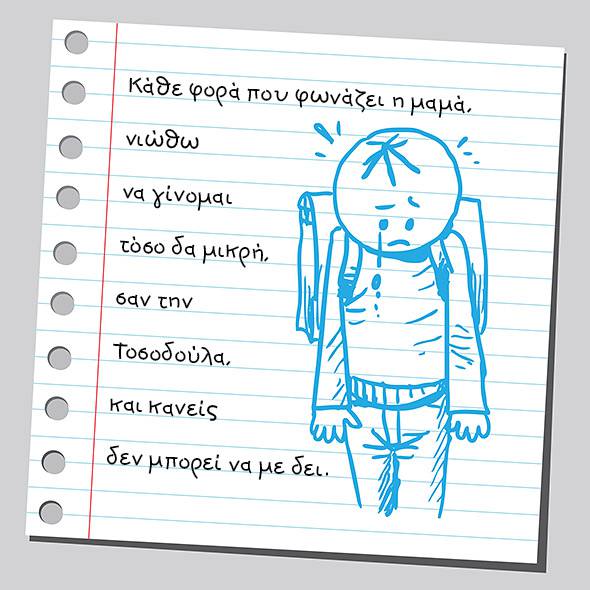 Κάθε φορά που φωνάζει η μαμά,
νιώθω
να γίνομαι
τόσο δα μικρή,
σαν την
Τοσοδούλα,
και κανείς
δεν μπορεί να με δει.